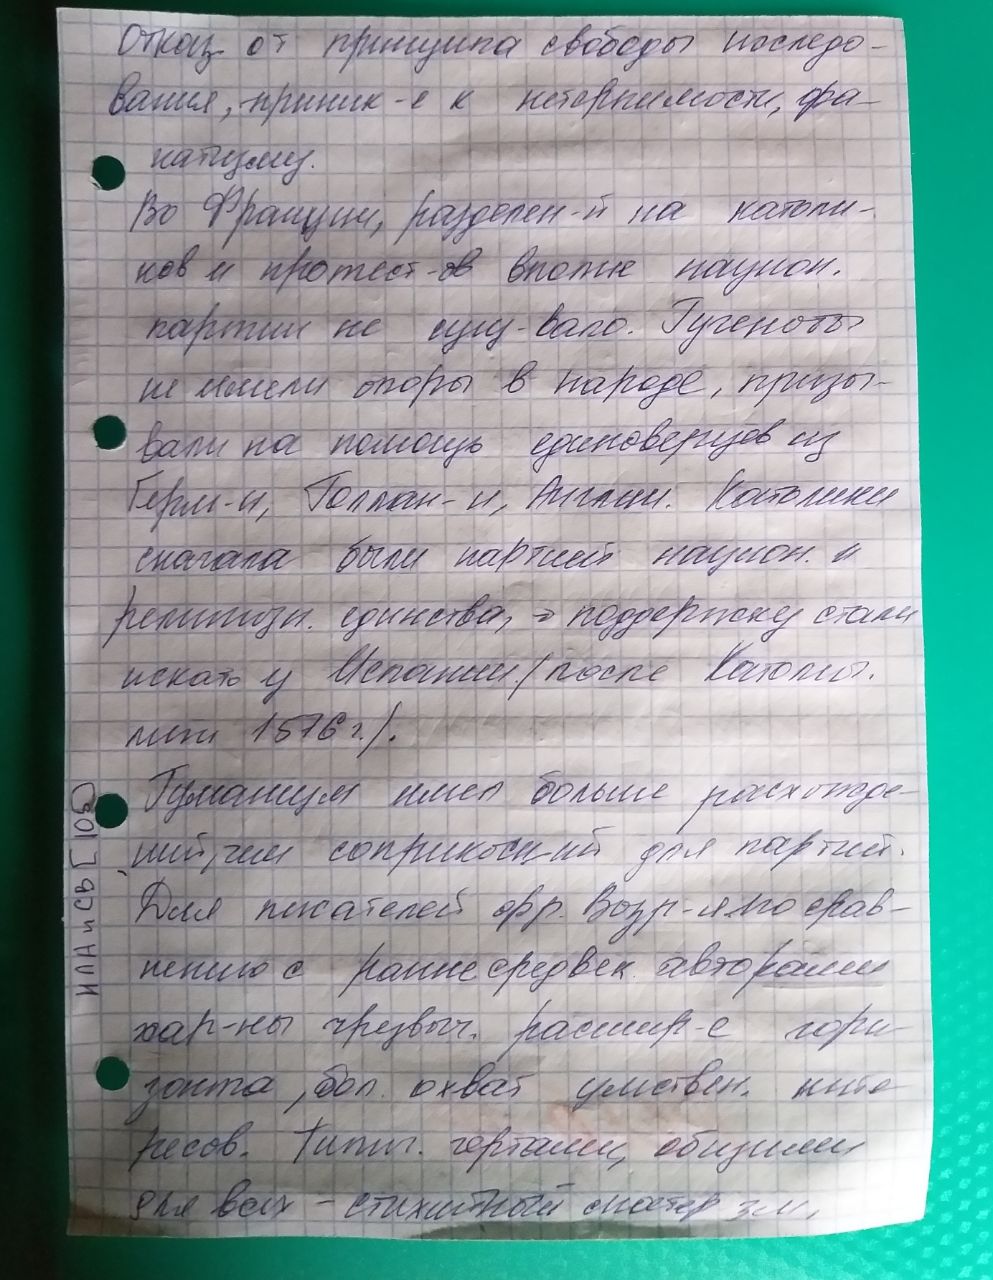 Отказ от принципа свободы исследо-
вания, приник-е к нетерпимости, фа-
натизму.
Во Франции, разделен-й на католи-
ков и протест-ов вполне национ.
партии не сущ-вало. Гугеноты
не имели опоры в народе, призы-
вали на помощь единоверцев из
Герм-и, Голлан-и, Англии. Католики
сначала были партией национ. и
религиозн. единства, → поддержку стали
искать у Испании /после Католич.
лиги 1576 г./.
Гуманизм имел больше расхожде-
ний, чем соприкосн-ий для партий.
Для писателей фр. Возр-я по срав-
нению с раннесредвек. авторами
хар-ны чрезвыч. расшир-е гори-
зонта, бол. охват умствен. инте-
ресов. Типич. чертами, общими
для всех – стихийный
ИЛА и СВ [105]